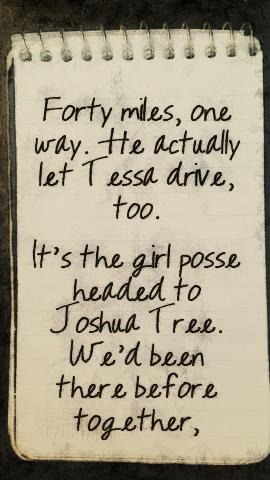 Forty miles, one
way. He actually
let Tessa drive,
too.
It's the girl posse
headed to
Joshua Tree.
We'd been
there before
together,